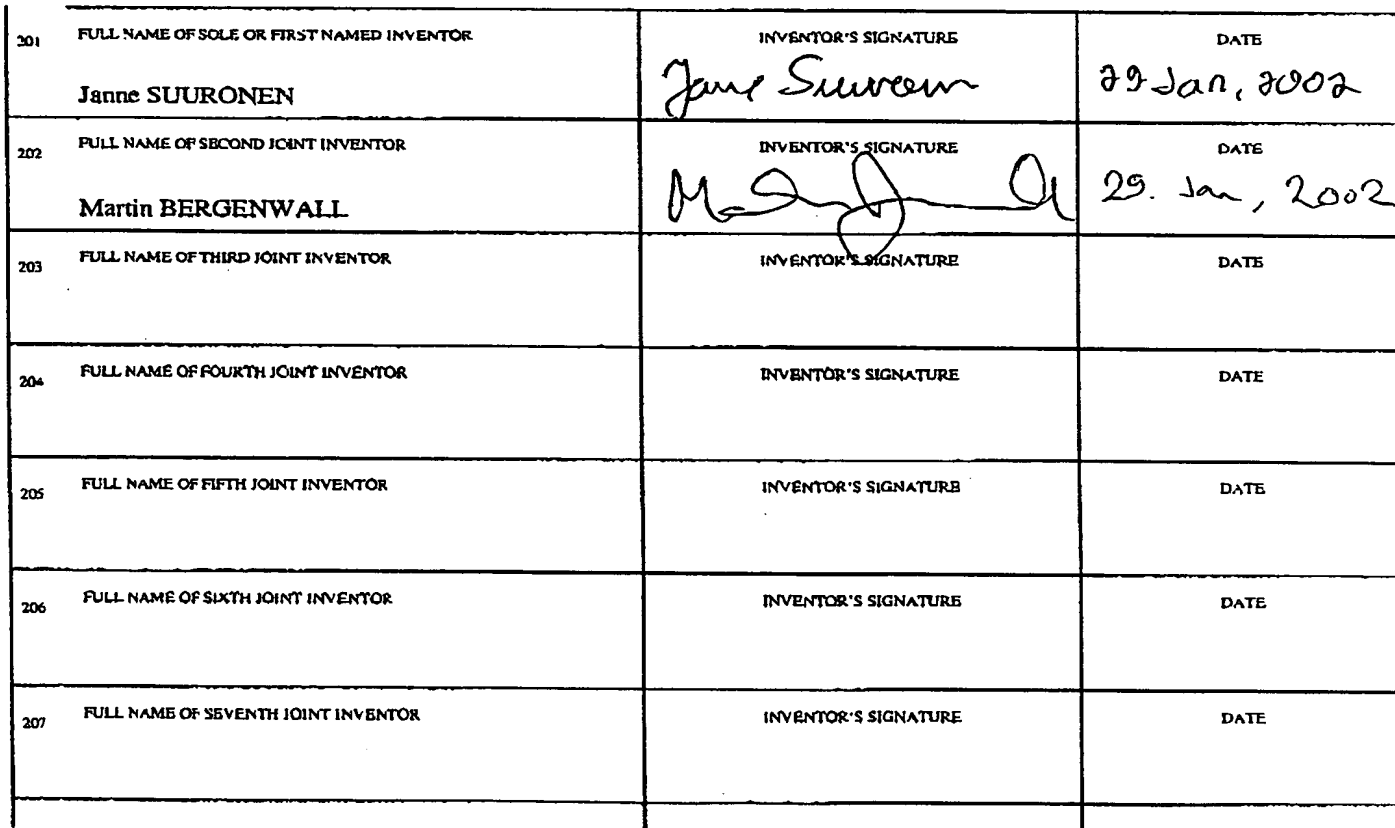 201 FULL NAME OF SOLE OR FIRST NAMED INVENTOR INVENTOR'S SIGNATURE DATE
Janne SUURONEN 29 Jan, 2002
202 FULL NAME OF SECOND JOINT INVENTOR INVENTOR'S SIGNATURE DATE
Martin BERGENWALL 29. Jan, 2002
203 FULL NAME OF THIRD JOINT INVENTOR INVENTOR'S SIGNATURE DATE
204 FULL NAME OF FOURTH JOINT INVENTOR INVENTOR'S SIGNATURE DATE
205 FULL NAME OF FIFTH JOINT INVENTOR INVENTOR'S SIGNATURE DATE
206 FULL NAME OF SIXTH JOINT INVENTOR INVENTOR'S SIGNATURE DATE
207 FULL NAME OF SEVENTH JOINT INVENTOR INVENTOR'S SIGNATURE DATE